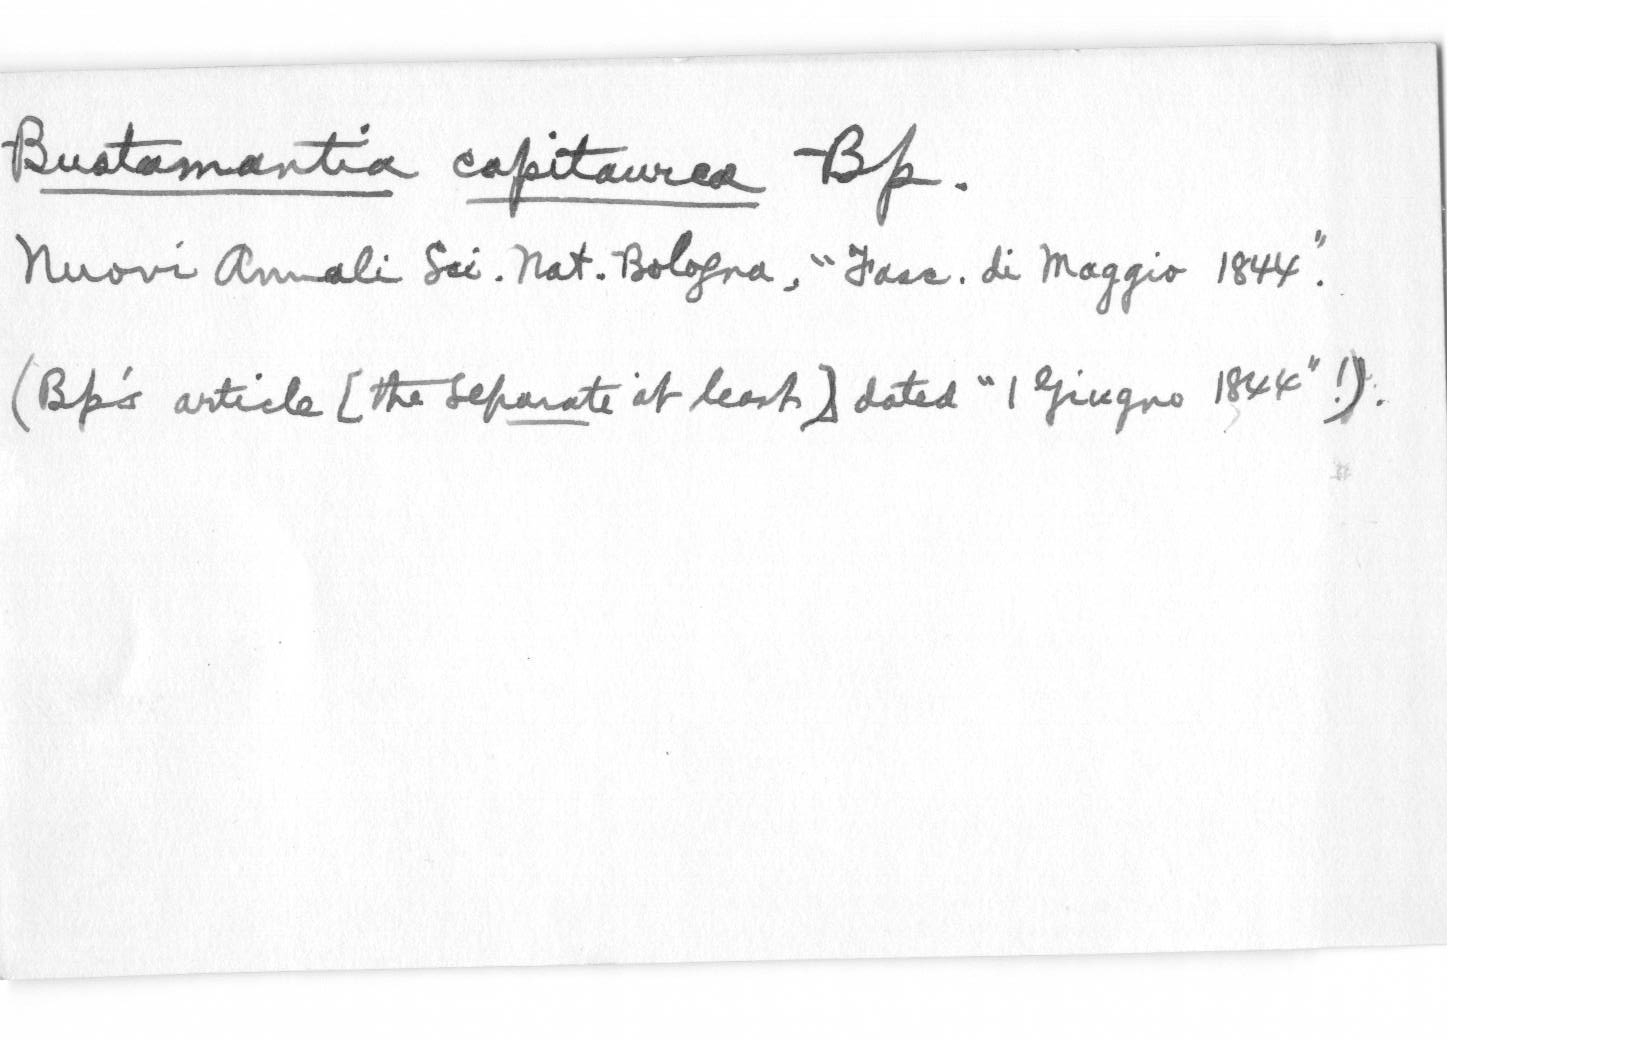 Bustamantia capitaurea Bp.
Nuovi Annali Sci. Nat. Bologna, "Fasc. di Maggio 1844".
(Bp's article [the separate at least] dated "1 Giugno 1844"!).